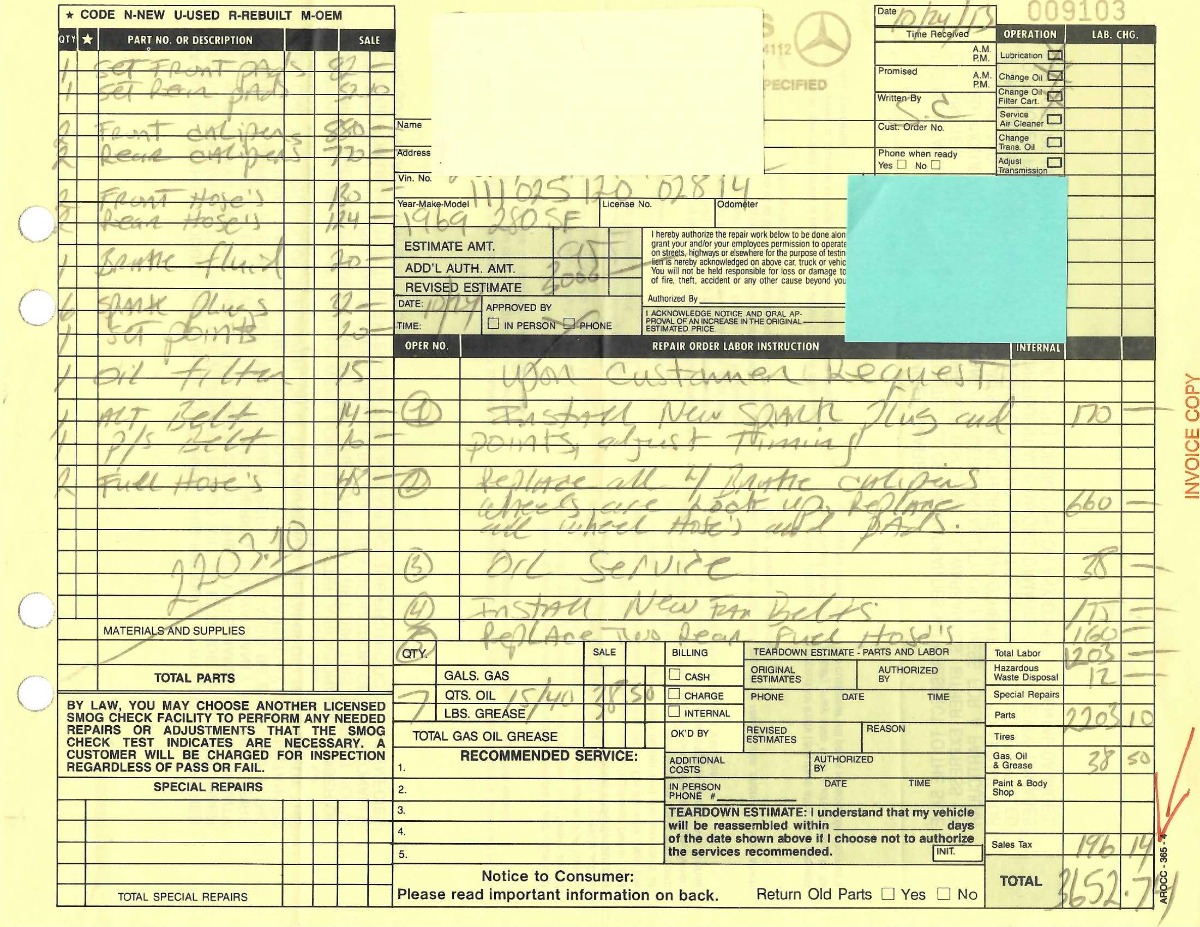 ★ CODE N-NEW U-USED R-REBUILT M-OEM
QTY ★ PART NO. OR DESCRIPTION SALE
1 Set Front pads 82 —
1 Set Rear pads 52 10
2 Front calipers 880 —
2 Rear calipers 770 —
2 Front Hose's 130 —
2 Rear Hose's 124 —
1 Brake fluid 20 —
6 Spark plugs 32 —
1 set points 20 —
1 Oil filter 15
1 ALT Belt 14 —
1 P/S Belt 16 —
2 Fuel Hose's 48 —
2203.10
MATERIALS AND SUPPLIES
TOTAL PARTS
BY LAW, YOU MAY CHOOSE ANOTHER LICENSED
SMOG CHECK FACILITY TO PERFORM ANY NEEDED
REPAIRS OR ADJUSTMENTS THAT THE SMOG
CHECK TEST INDICATES ARE NECESSARY. A
CUSTOMER WILL BE CHARGED FOR INSPECTION
REGARDLESS OF PASS OR FAIL.
SPECIAL REPAIRS
TOTAL SPECIAL REPAIRS
S
4112
PECIFIED
Name
Address
Vin. No. 111 025 120 02814
Year-Make-Model License No. Odometer
1969 280 SE
ESTIMATE AMT.
ADD'L AUTH. AMT.
REVISED ESTIMATE
DATE: 10/24 APPROVED BY
TIME: IN PERSON PHONE
I hereby authorize the repair work below to be done alon
grant your and/or your employees permission to operate
on streets, highways or elsewhere for the purpose of testin
lien is hereby acknowledged on above car, truck or vehic
You will not be held responsible for loss or damage to
of fire, theft, accident or any other cause beyond you
Authorized By
I ACKNOWLEDGE NOTICE AND ORAL AP-
PROVAL OF AN INCREASE IN THE ORIGINAL
ESTIMATED PRICE.
Date 10/24/13
Time Received
A.M.
P.M.
Promised A.M.
P.M.
Written By S.C
Cust. Order No.
Phone when ready
Yes No
009103
OPERATION LAB. CHG.
Lubrication
Change Oil
Change Oil
Filter Cart.
Service
Air Cleaner
Change
Trans. Oil
Adjust
Transmission
OPER NO. REPAIR ORDER LABOR INSTRUCTION INTERNAL
Upon Customer Request
1 Install New Spark Plug and 170 —
points, adjust Timing
2 Replace all 4 Brake calipers
wheels are Lock up, Replace 660 —
all wheel Hose's and pads.
3 Oil Service 38 —
4 Install New Fan Belts. 175 —
Replace Two Rear Fuel Hose's 160 —
QTY. SALE
GALS. GAS
7 QTS. OIL 15/40 38 50
LBS. GREASE
TOTAL GAS OIL GREASE
RECOMMENDED SERVICE:
1.
2.
3.
4.
5.
BILLING
CASH
CHARGE
INTERNAL
OK'D BY
TEARDOWN ESTIMATE - PARTS AND LABOR
ORIGINAL
ESTIMATES
AUTHORIZED
BY
PHONE DATE TIME
REVISED
ESTIMATES
REASON
ADDITIONAL
COSTS
AUTHORIZED
BY
IN PERSON
PHONE #
DATE TIME
TEARDOWN ESTIMATE: I understand that my vehicle
will be reassembled within days
of the date shown above if I choose not to authorize
the services recommended.
INIT.
Total Labor 1203 —
Hazardous
Waste Disposal 12 —
Special Repairs
Parts 2203 10
Tires
Gas, Oil
& Grease 38 50
Paint & Body
Shop
Sales Tax 196 14
TOTAL 3652.74
Notice to Consumer:
Please read important information on back.
Return Old Parts Yes No
INVOICE COPY
AROCC - 365 - 4